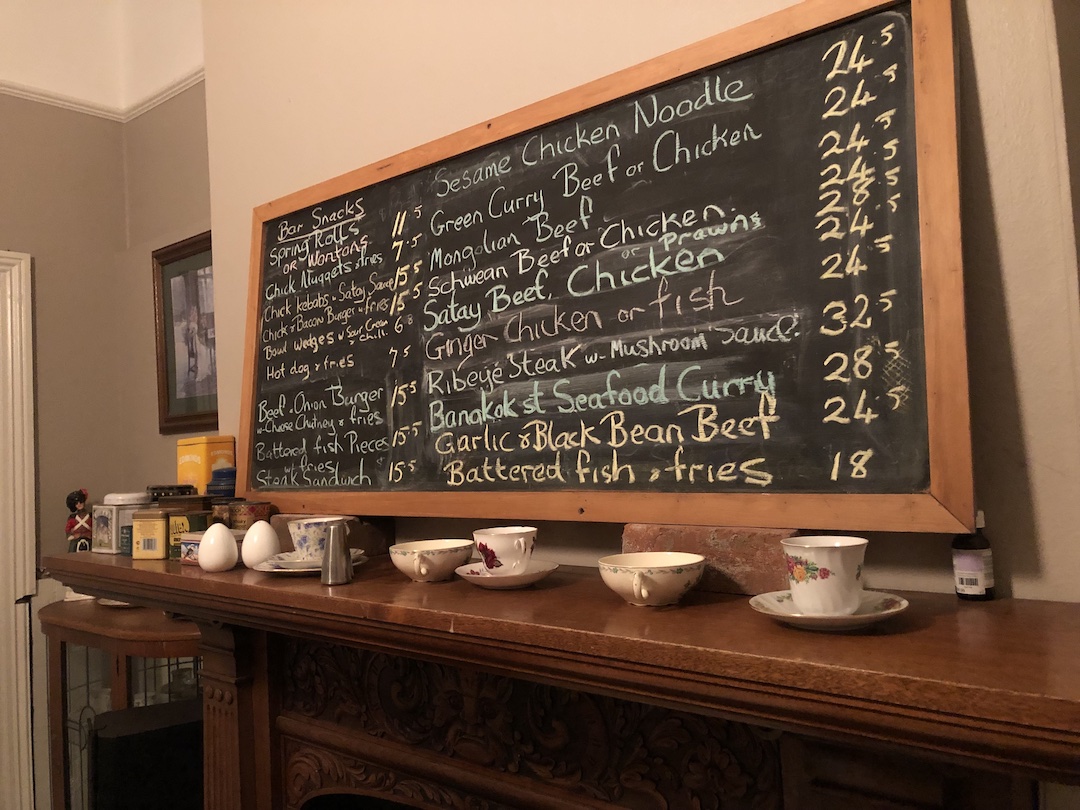 Bar Snacks
Spring Rolls
or Wontons 11 5
Chick Nuggets & fries 7 5
Chick kebabs w Satay Sauce 15 5
Chick & Bacon Burger & fries 15 5
Bowl wedges w Sour Cream & chili. 6 8
Hot dog & fries 7 5
Beef & Onion Burger
w Cheese Chutney & fries 15 5
Battered fish Pieces
w fries 15 5
Steak Sandwich 15 5
Sesame Chicken Noodle 24 5
Green Curry Beef or Chicken 24 5
Mongolian Beef 24 5
Schwean Beef or Chicken. 24 5
Satay Beef, Chicken or Prawns 28 5
Ginger Chicken or fish 24 5
Ribeye Steak w- Mushroom Sauce. 32 5
Bangkok st Seafood Curry 28 5
Garlic & Black Bean Beef 24 5
Battered fish & fries 18